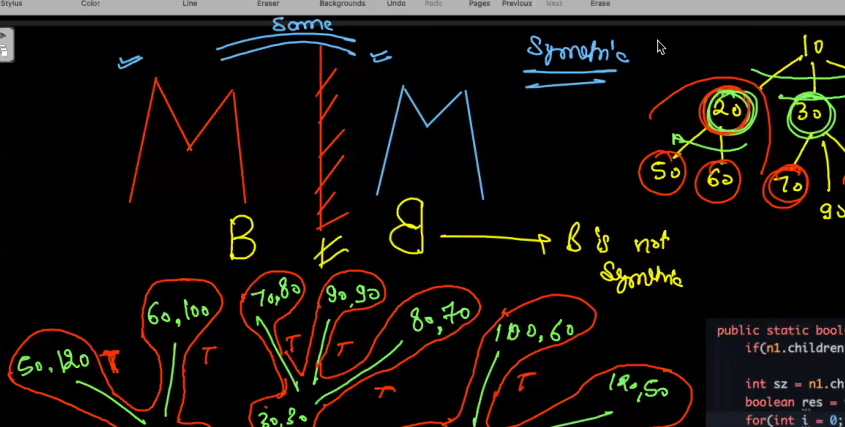 Stylus Color Line Eraser Backgrounds Undo Redo Pages Previous Next Erase
Same
Symetric
M M
10
20 30
50 60 70
90
B 8 B is not
Symetric
70,80 90,90
60,100 80,70
100,60
50,120 T T T T
T T
30,30
public static bool
if(n1.children
int sz = n1.ch
boolean res =
for(int i = 0;